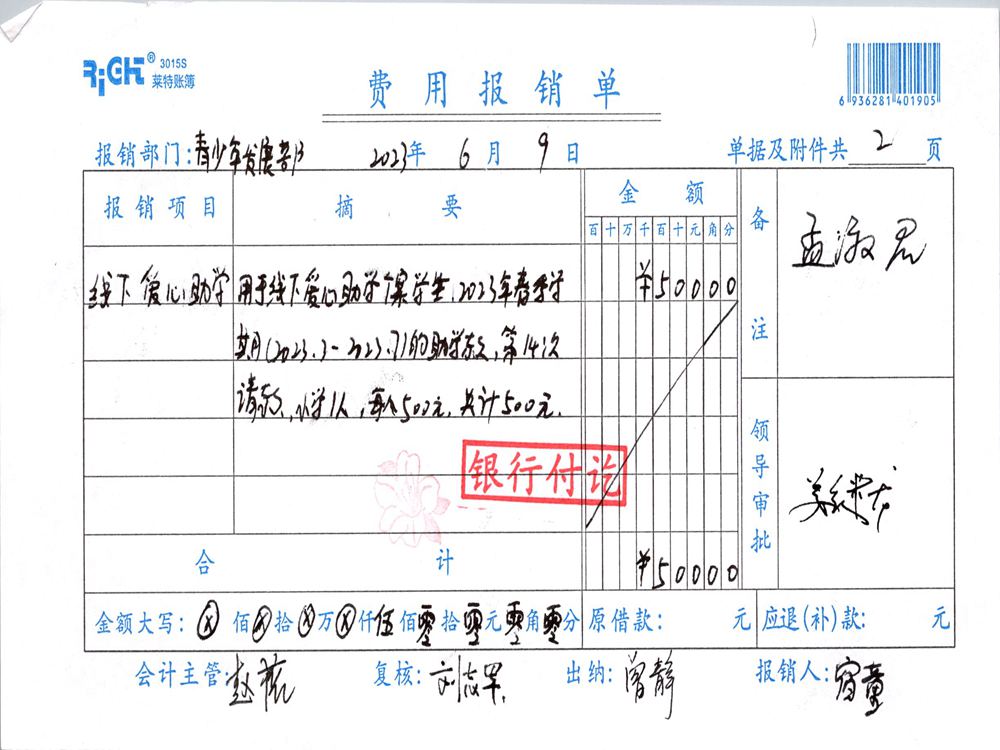 RiGHT® 3015S
莱特账簿
费用报销单
6 936281 401905
报销部门:青少年发展部 2023年 6月 9日 单据及附件共 2 页
报销项目 摘要 金额 备注
百十万千百十元角分
线下爱心助学 用于线下爱心助学个案学生,2023年春季学 ¥50000
期(2023.3-2023.7)的助学款,第14次
请款,小学1人,每人500元,共计500元.
银行付讫
领导审批
合计 ¥50000
金额大写:ⓧ佰ⓧ拾ⓧ万ⓧ仟伍佰零拾零元零角零分 原借款: 元 应退(补)款: 元
会计主管: 赵 复核: 刘志军 出纳: 曾静 报销人: 宿童